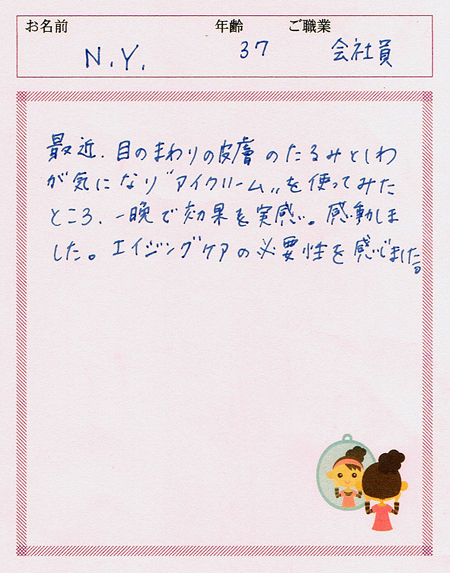 お名前 年齢 ご職業
N.Y. 37 会社員
最近、目のまわりの皮膚のたるみとしわ
が気になり"アイクリーム"を使ってみた
ところ、一晩で効果を実感。感動しま
した。エイジングケアの必要性を感じました。